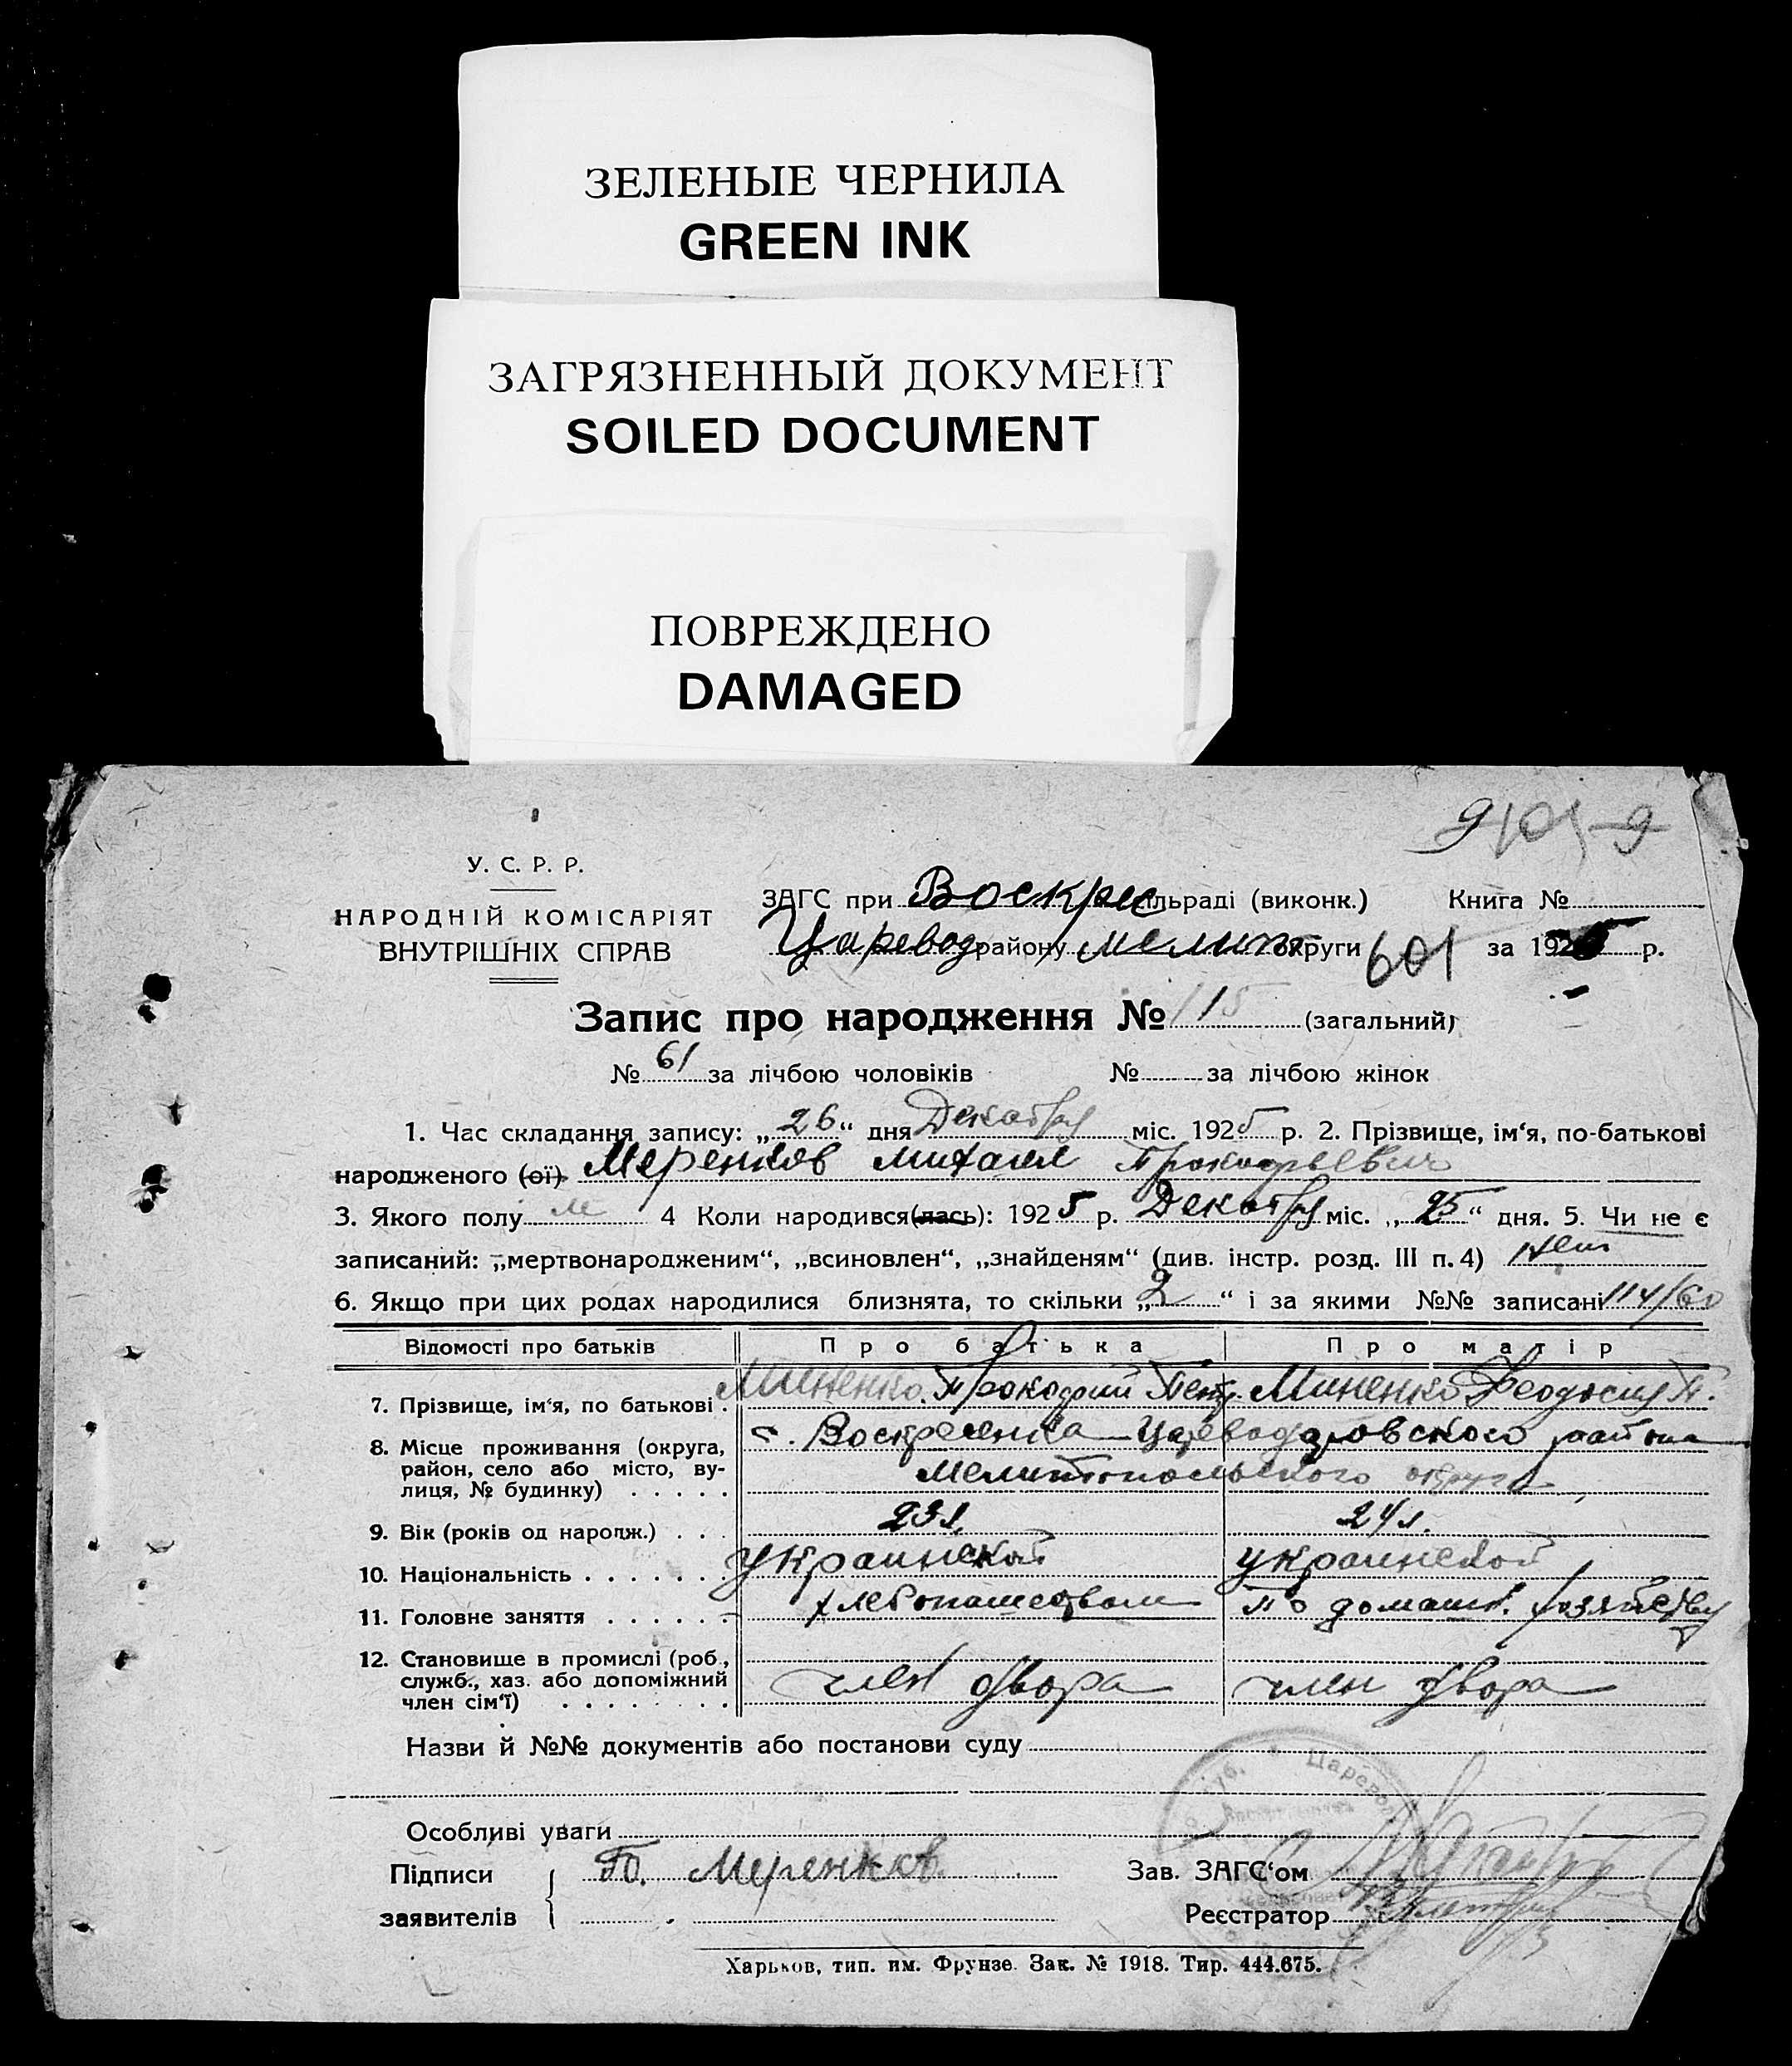 ЗЕЛЕНЫЕ ЧЕРНИЛА
GREEN INK
ЗАГРЯЗНЕННЫЙ ДОКУМЕНТ
SOILED DOCUMENT
ПОВРЕЖДЕНО
DAMAGED
У. С. Р. Р.
НАРОДНІЙ КОМІСАРІЯТ
ВНУТРІШНІХ СПРАВ
ЗАГС при Воскрес сільраді (виконк.) Книга №
Царевод району Мелит округи 601 за 1925 р.
Запис про народження № 115 (загальний)
№ 61 за лічбою чоловіків № за лічбою жінок
1. Час складання запису: „26“ дня Декабря міс. 1925 р. 2. Прізвище, ім‘я, по-батькові
народженого (ої) Меренков Михаил Прокофьевич
3. Якого полу м 4 Коли народився(лась): 1925 р. Декабря міс. „25“ дня. 5. Чи не є
записаний: „мертвонародженим“, „всиновлен“, „знайденям“ (див. інстр. розд. III п. 4) Нет
6. Якщо при цих родах народилися близнята, то скільки „2“ і за якими №№ записані 114/60
Відомості про батьків Про батька Про матір
7. Прізвище, ім‘я, по батькові . Миненко Прокофий Петр. Миненко Феодосия П.
8. Місце проживання (округа, район, село або місто, вулиця, № будинку) . . . . . с. Воскресенка Цареводаровского района
Мелитопольского округа
9. Вік (років од народж.) . . . 23 л. 24 л.
10. Національність . . . . . . . украинской украинской
11. Головне заняття . . . . . . хлебопашеством по домашн. хозяйству
12. Становище в промислі (роб., служб., хаз. або допоміжний член сім‘ї) . . . . . . . . член двора член двора
Назви й №№ документів або постанови суду
Особливі уваги
Підписи П. Меренков Зав. ЗАГС‘ом
заявителів Реєстратор
Харьков, тип. им. Фрунзе. Зак. № 1918. Тир. 444.675.